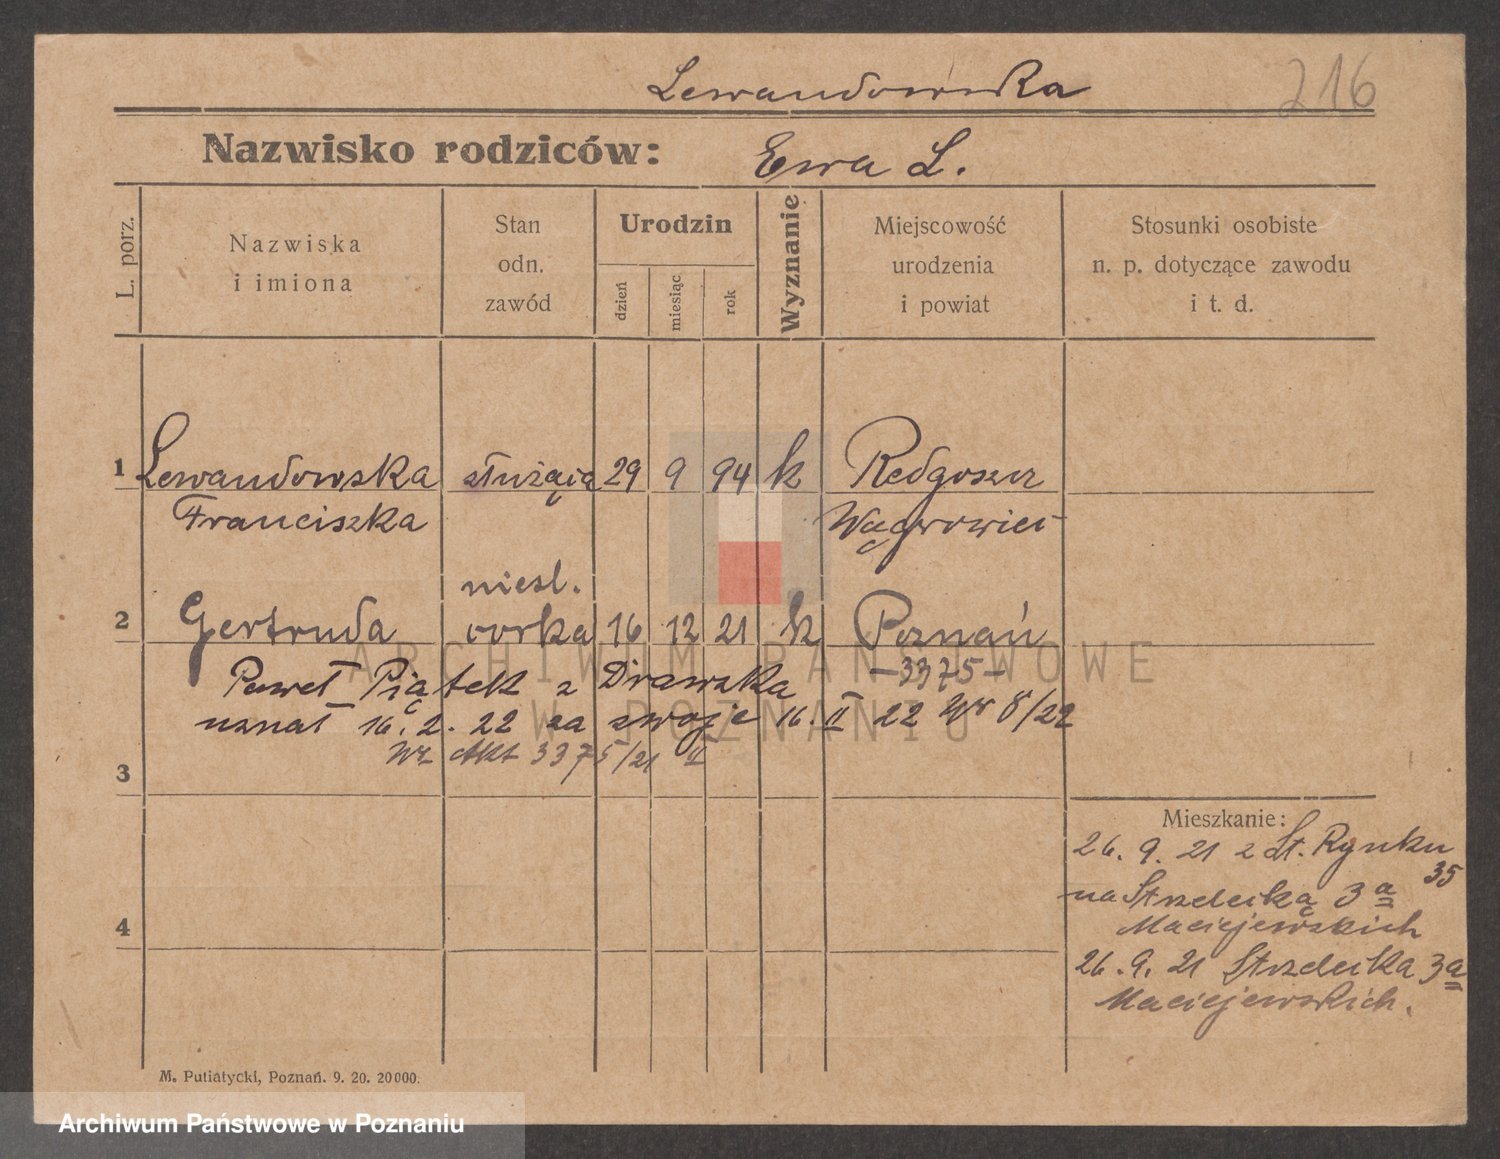 Lewandowska
216
Nazwisko rodziców: Ewa L.
L. porz.
Nazwiska
i imiona
Stan
odn.
zawód
Urodzin
dzień
miesiąc
rok
Wyznanie
Miejscowość
urodzenia
i powiat
Stosunki osobiste
n. p. dotyczące zawodu
i t. d.
1 Lewandowska służąca 29 9 94 k Redgoszcz
Franciszka Wągrowiec
niesl.
2 Gertruda corka 16 12 21 k Poznań
ARCHIWUM PAŃSTWOWE
W POZNANIU
Paweł Piątek z Drawska -3375-
uznał 16. 2. 22 za swoje 16. II 22 Wr 8/22
Wr Akt 3375/21 II
3
Mieszkanie:
26. 9. 21 z St. Rynku
35
na Strzelecką 3a
Maciejewskich
4
26. 9. 21 Strzelecka 3a
Maciejewskich.
M. Putiatycki, Poznań. 9. 20. 20000.
Archiwum Państwowe w Poznaniu